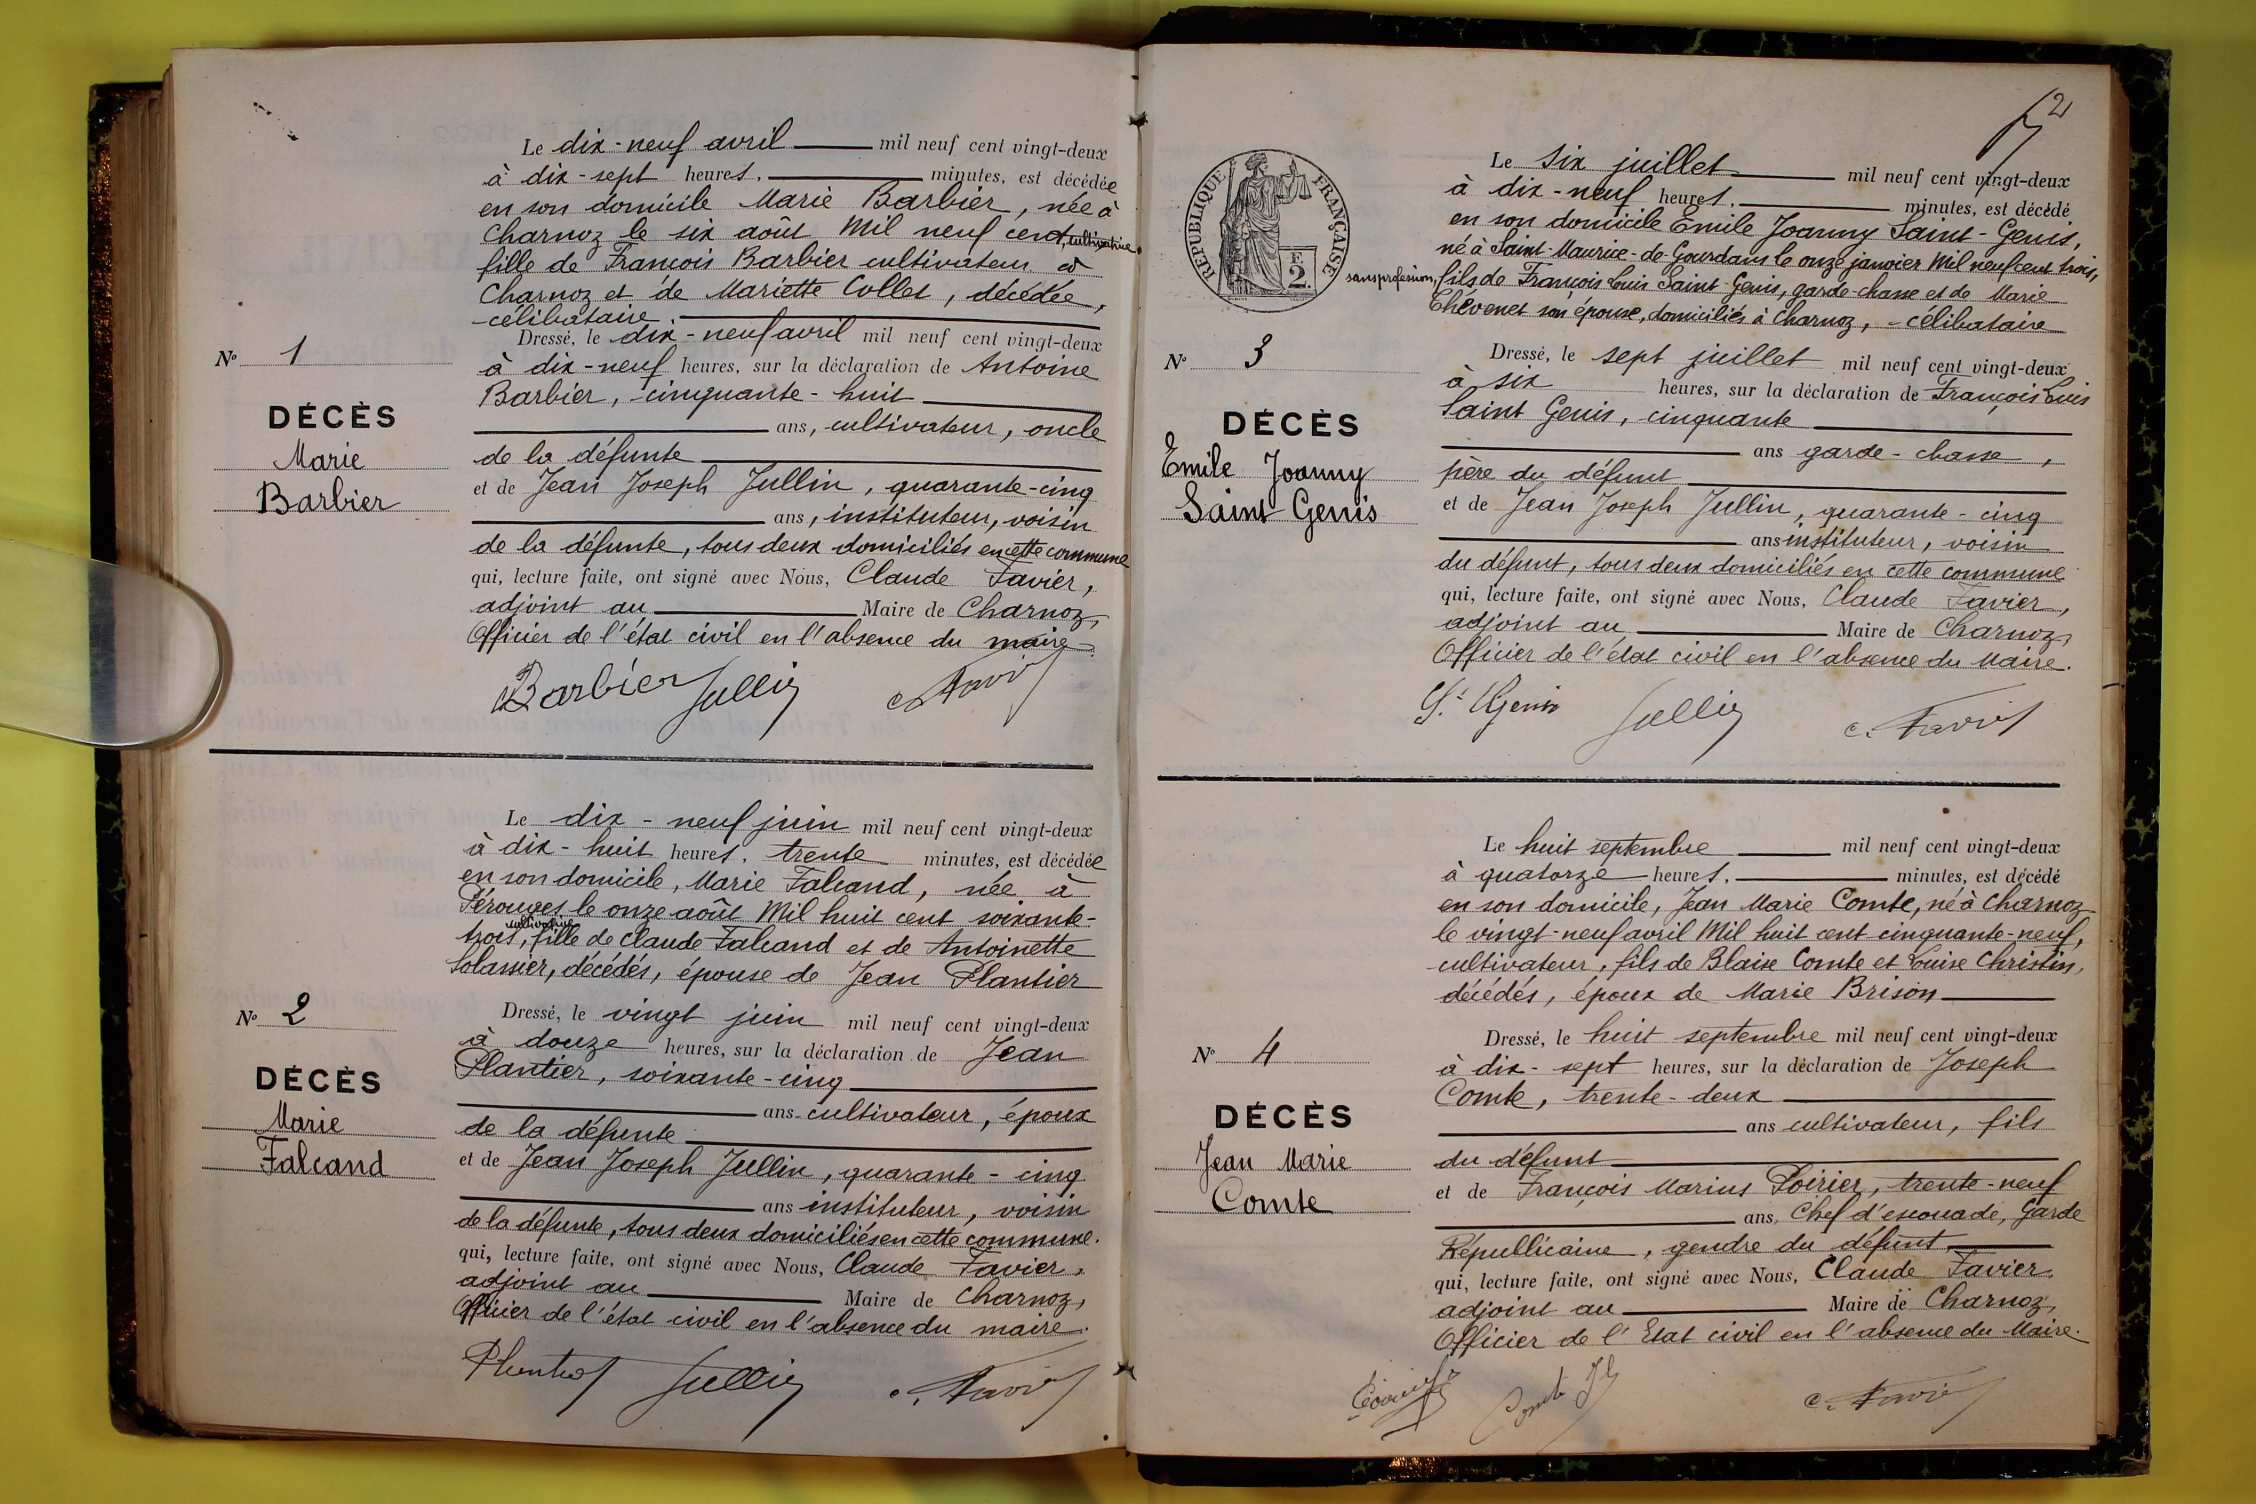 Le dix-neuf avril mil neuf cent vingt-deux
à dix-sept heures, minutes, est décédée
en son domicile Marie Barbier, née à
Charnoz le six août Mil neuf cent, cultivatrice,
fille de François Barbier cultivateur à
Charnoz et de Mariette Collet, décédée,
célibataire.
Dressé, le dix-neuf avril mil neuf cent vingt-deux
à dix-neuf heures, sur la déclaration de Antoine
Barbier, cinquante-huit
ans, cultivateur, oncle
de la défunte
et de Jean Joseph Jullin, quarante-cinq
ans, instituteur, voisin
de la défunte, tous deux domiciliés en cette commune
qui, lecture faite, ont signé avec Nous, Claude Favier,
adjoint au Maire de Charnoz,
Officier de l'état civil en l'absence du maire.
Barbier Jullin C. Favier
N° 1
DÉCÈS
Marie
Barbier
Le dix-neuf juin mil neuf cent vingt-deux
à dix-huit heures, trente minutes, est décédée
en son domicile, Marie Falcand, née à
Pérouges le onze août Mil huit cent soixante-
cultivatrice
trois, fille de Claude Falcand et de Antoinette
Solassier, décédés, épouse de Jean Plantier
Dressé, le vingt juin mil neuf cent vingt-deux
à douze heures, sur la déclaration de Jean
Plantier, soixante-cinq
ans cultivateur, époux
de la défunte
et de Jean Joseph Jullin, quarante-cinq
ans instituteur, voisin
de la défunte, tous deux domiciliés en cette commune.
qui, lecture faite, ont signé avec Nous, Claude Favier,
adjoint au Maire de Charnoz,
Officier de l'état civil en l'absence du maire.
Jullin C. Favier
N° 2
DÉCÈS
Marie
Falcand
2
RÉPUBLIQUE FRANÇAISE
F
2.
Le six juillet mil neuf cent vingt-deux
à dix-neuf heures, minutes, est décédé
en son domicile Emile Joanny Saint-Genis,
né à Saint-Maurice-de-Gourdans le onze janvier Mil neuf cent trois,
sans profession, fils de François Louis Saint-Genis, garde-chasse et de Marie
Thévenet son épouse, domiciliés à Charnoz, célibataire
Dressé, le sept juillet mil neuf cent vingt-deux
à six heures, sur la déclaration de François Louis
Saint Genis, cinquante
ans garde-chasse,
père du défunt
et de Jean Joseph Jullin, quarante-cinq
ans instituteur, voisin
du défunt, tous deux domiciliés en cette commune
qui, lecture faite, ont signé avec Nous, Claude Favier,
adjoint au Maire de Charnoz,
Officier de l'état civil en l'absence du Maire.
St Genis Jullin C. Favier
N° 3
DÉCÈS
Emile Joanny
Saint-Genis
Le huit septembre mil neuf cent vingt-deux
à quatorze heures, minutes, est décédé
en son domicile, Jean Marie Comte, né à Charnoz
le vingt-neuf avril Mil huit cent cinquante-neuf,
cultivateur, fils de Blaise Comte et Louise Christin,
décédés, époux de Marie Brison
Dressé, le huit septembre mil neuf cent vingt-deux
à dix-sept heures, sur la déclaration de Joseph
Comte, trente-deux
ans cultivateur, fils
du défunt
et de François Marius Poirier, trente-neuf
ans, Chef d'escouade, Garde
Républicaine, gendre du défunt
qui, lecture faite, ont signé avec Nous, Claude Favier,
adjoint au Maire de Charnoz,
Officier de l'Etat civil en l'absence du Maire.
Comte C. Favier
N° 4
DÉCÈS
Jean Marie
Comte